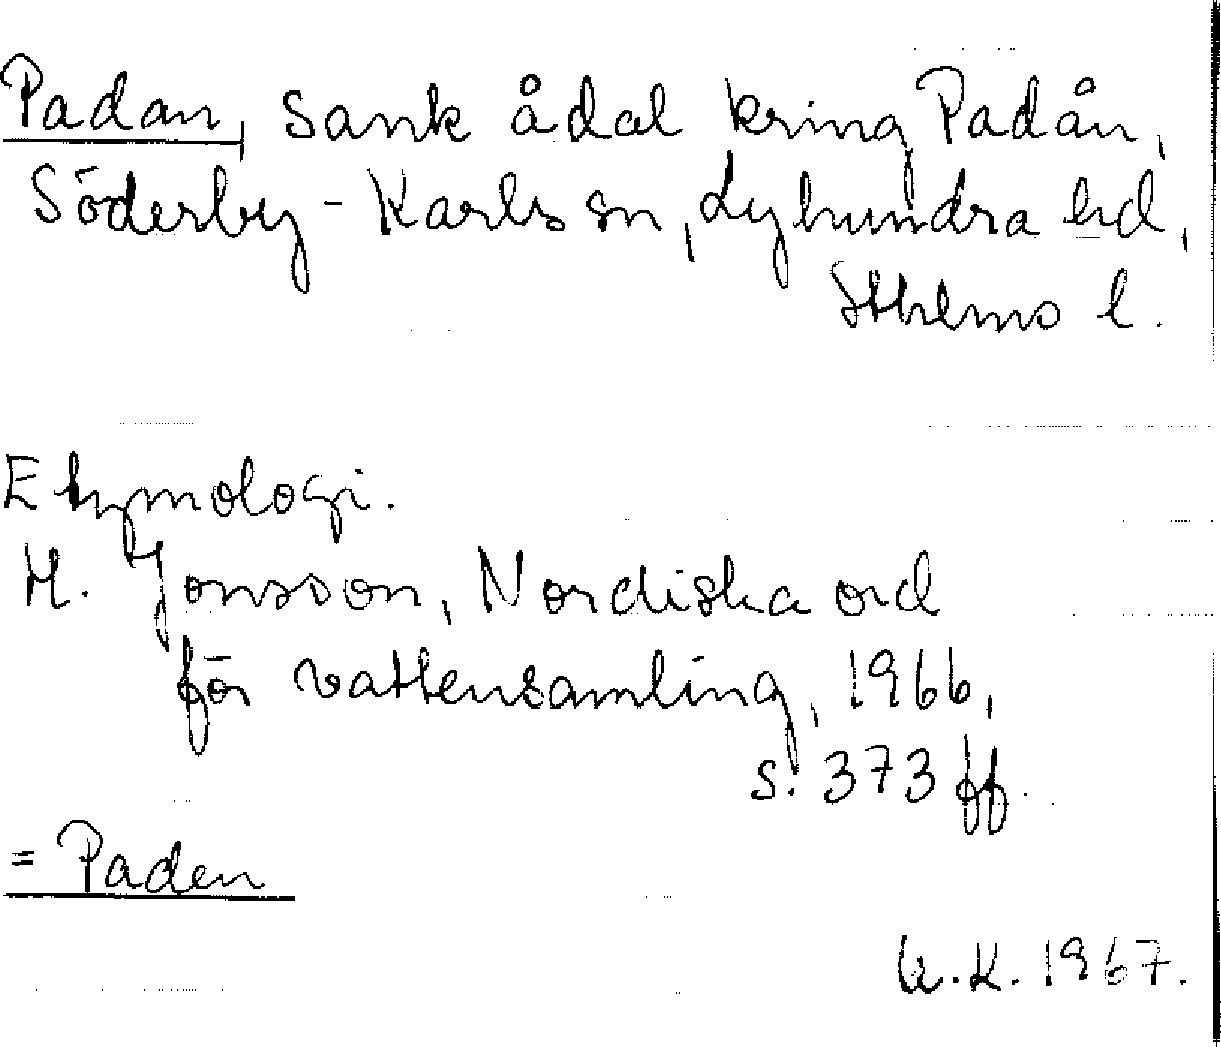 Padan, sank ådal kring Padån,
Söderby-Karls sn, Lyhundra hd,
Sthlms l.
Etymologi.
H. Jonsson, Nordiska ord
för vattensamling, 1966,
s. 373 ff.
= Paden
K. 1967.